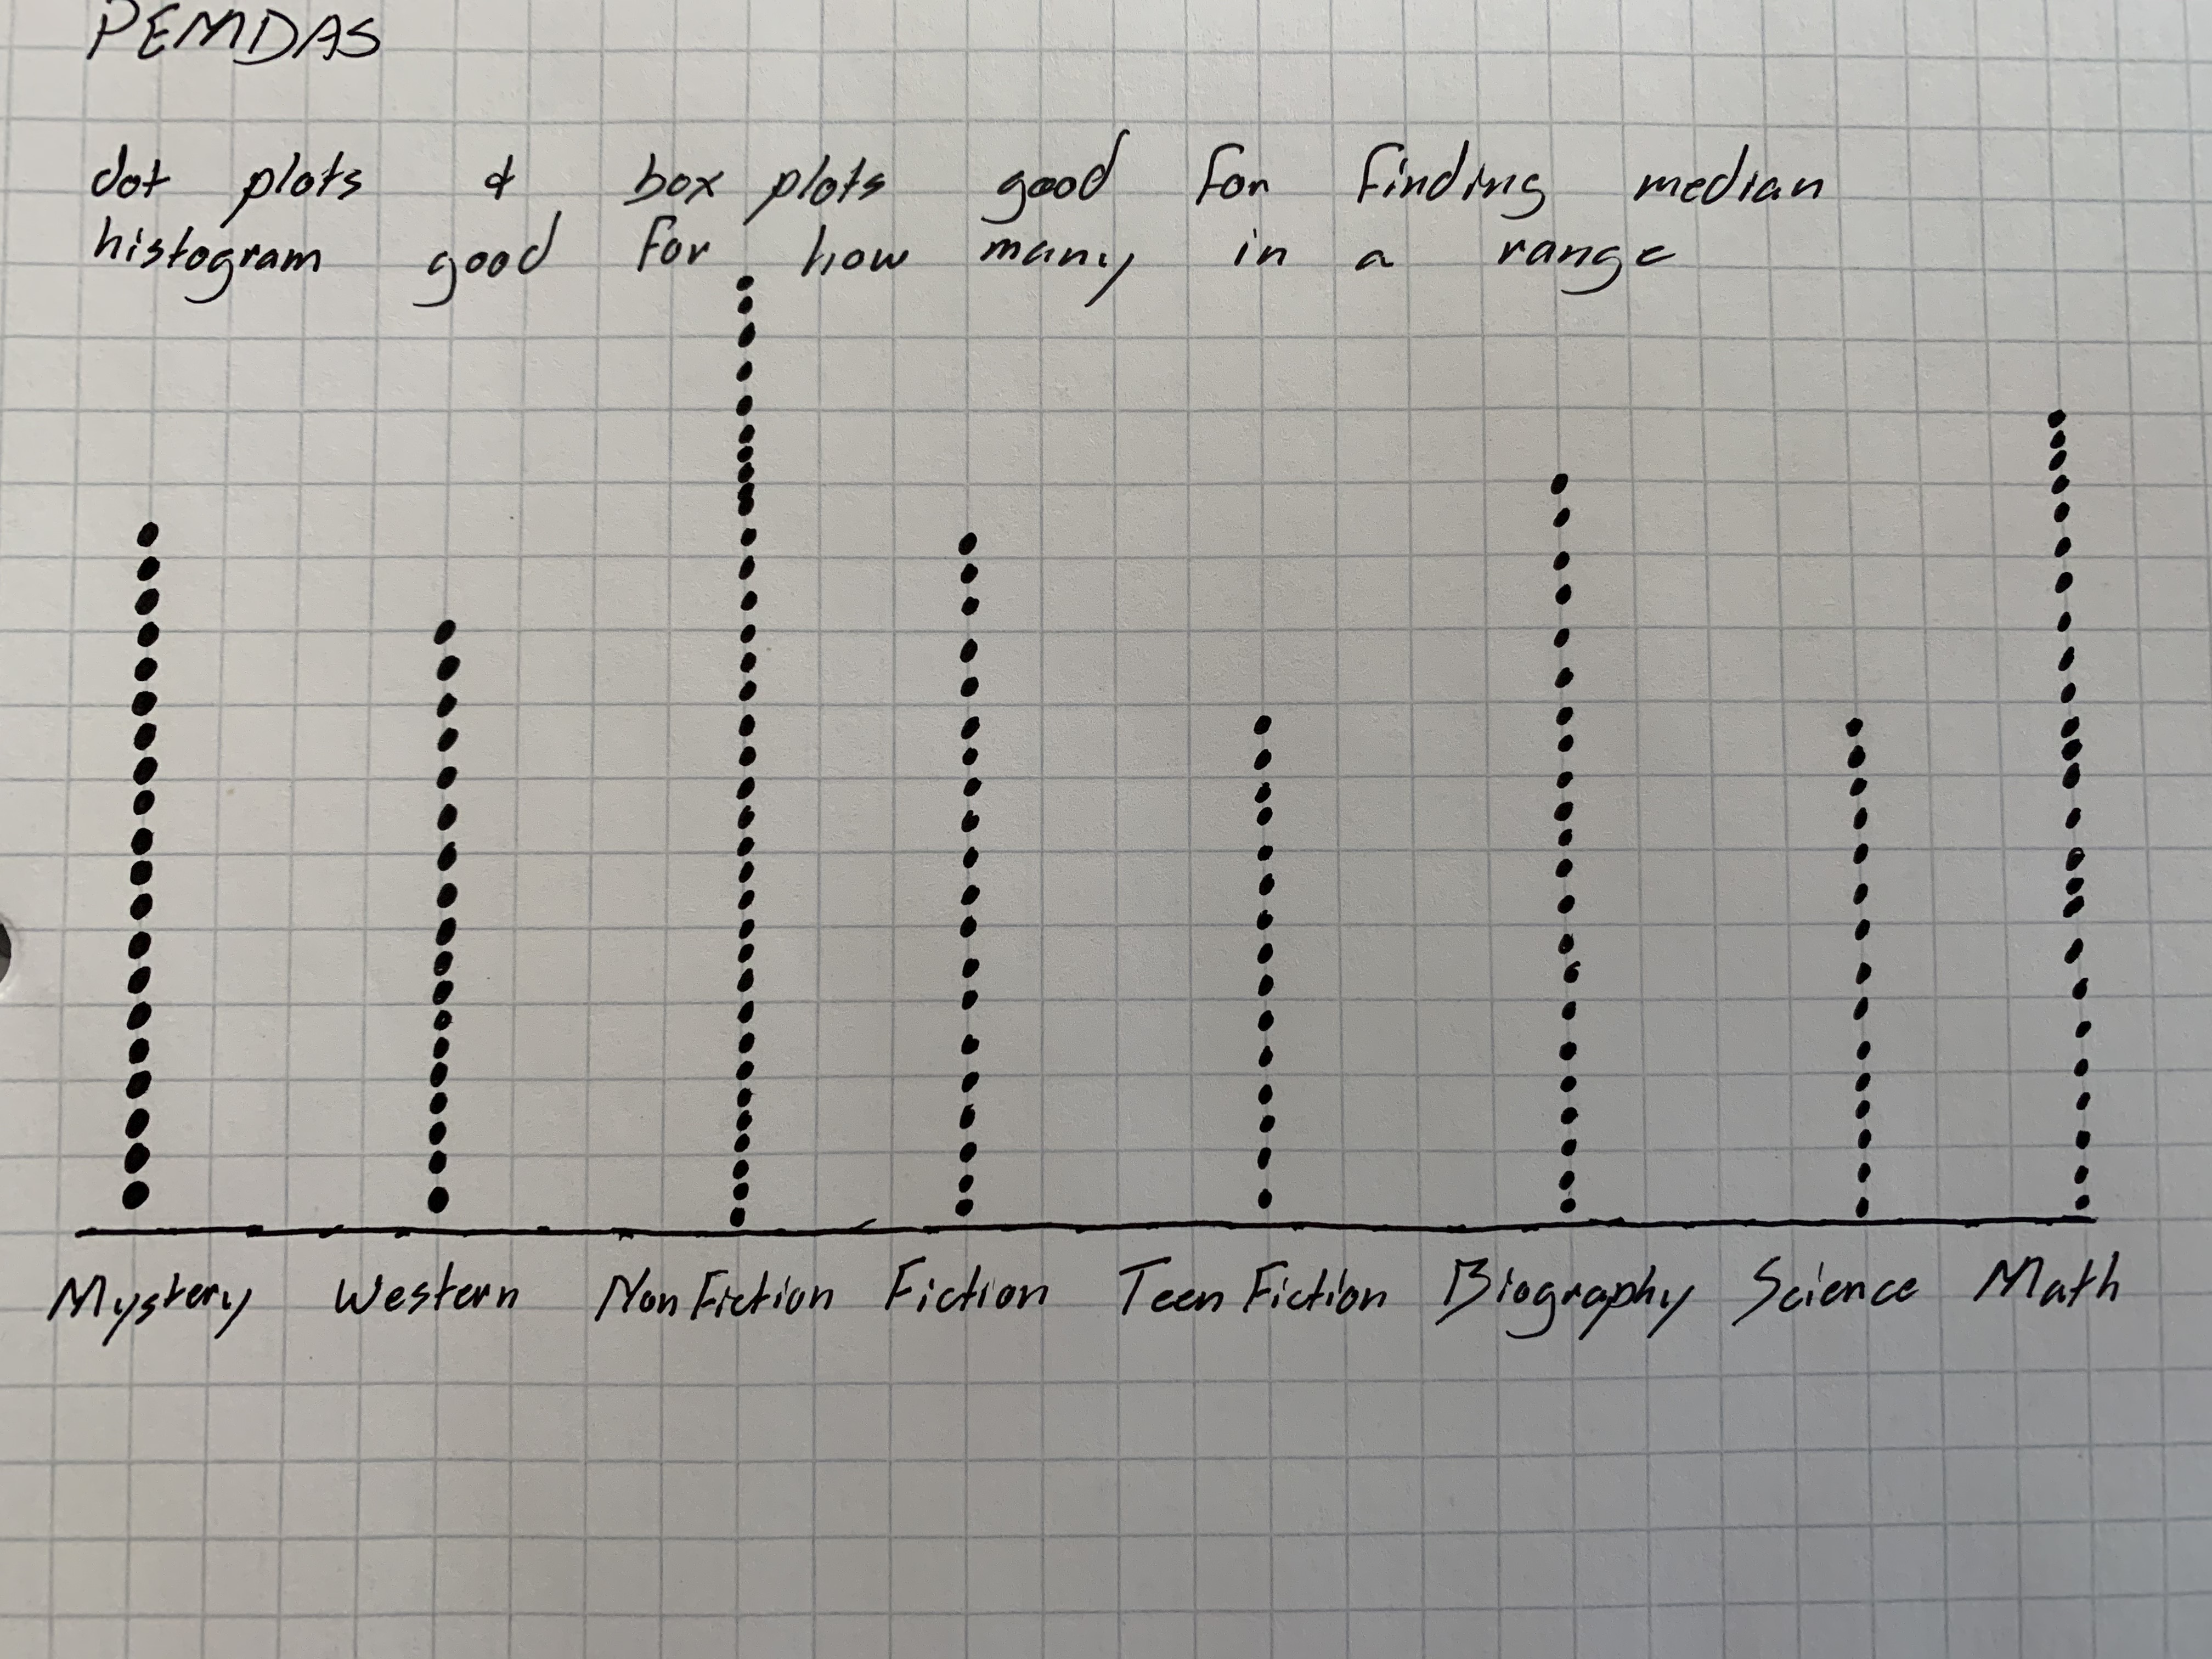 PEMDAS
dot plots & box plots good for finding median
histogram good for how many in a range
Mystery Western Non Fiction Fiction Teen Fiction Biography Science Math